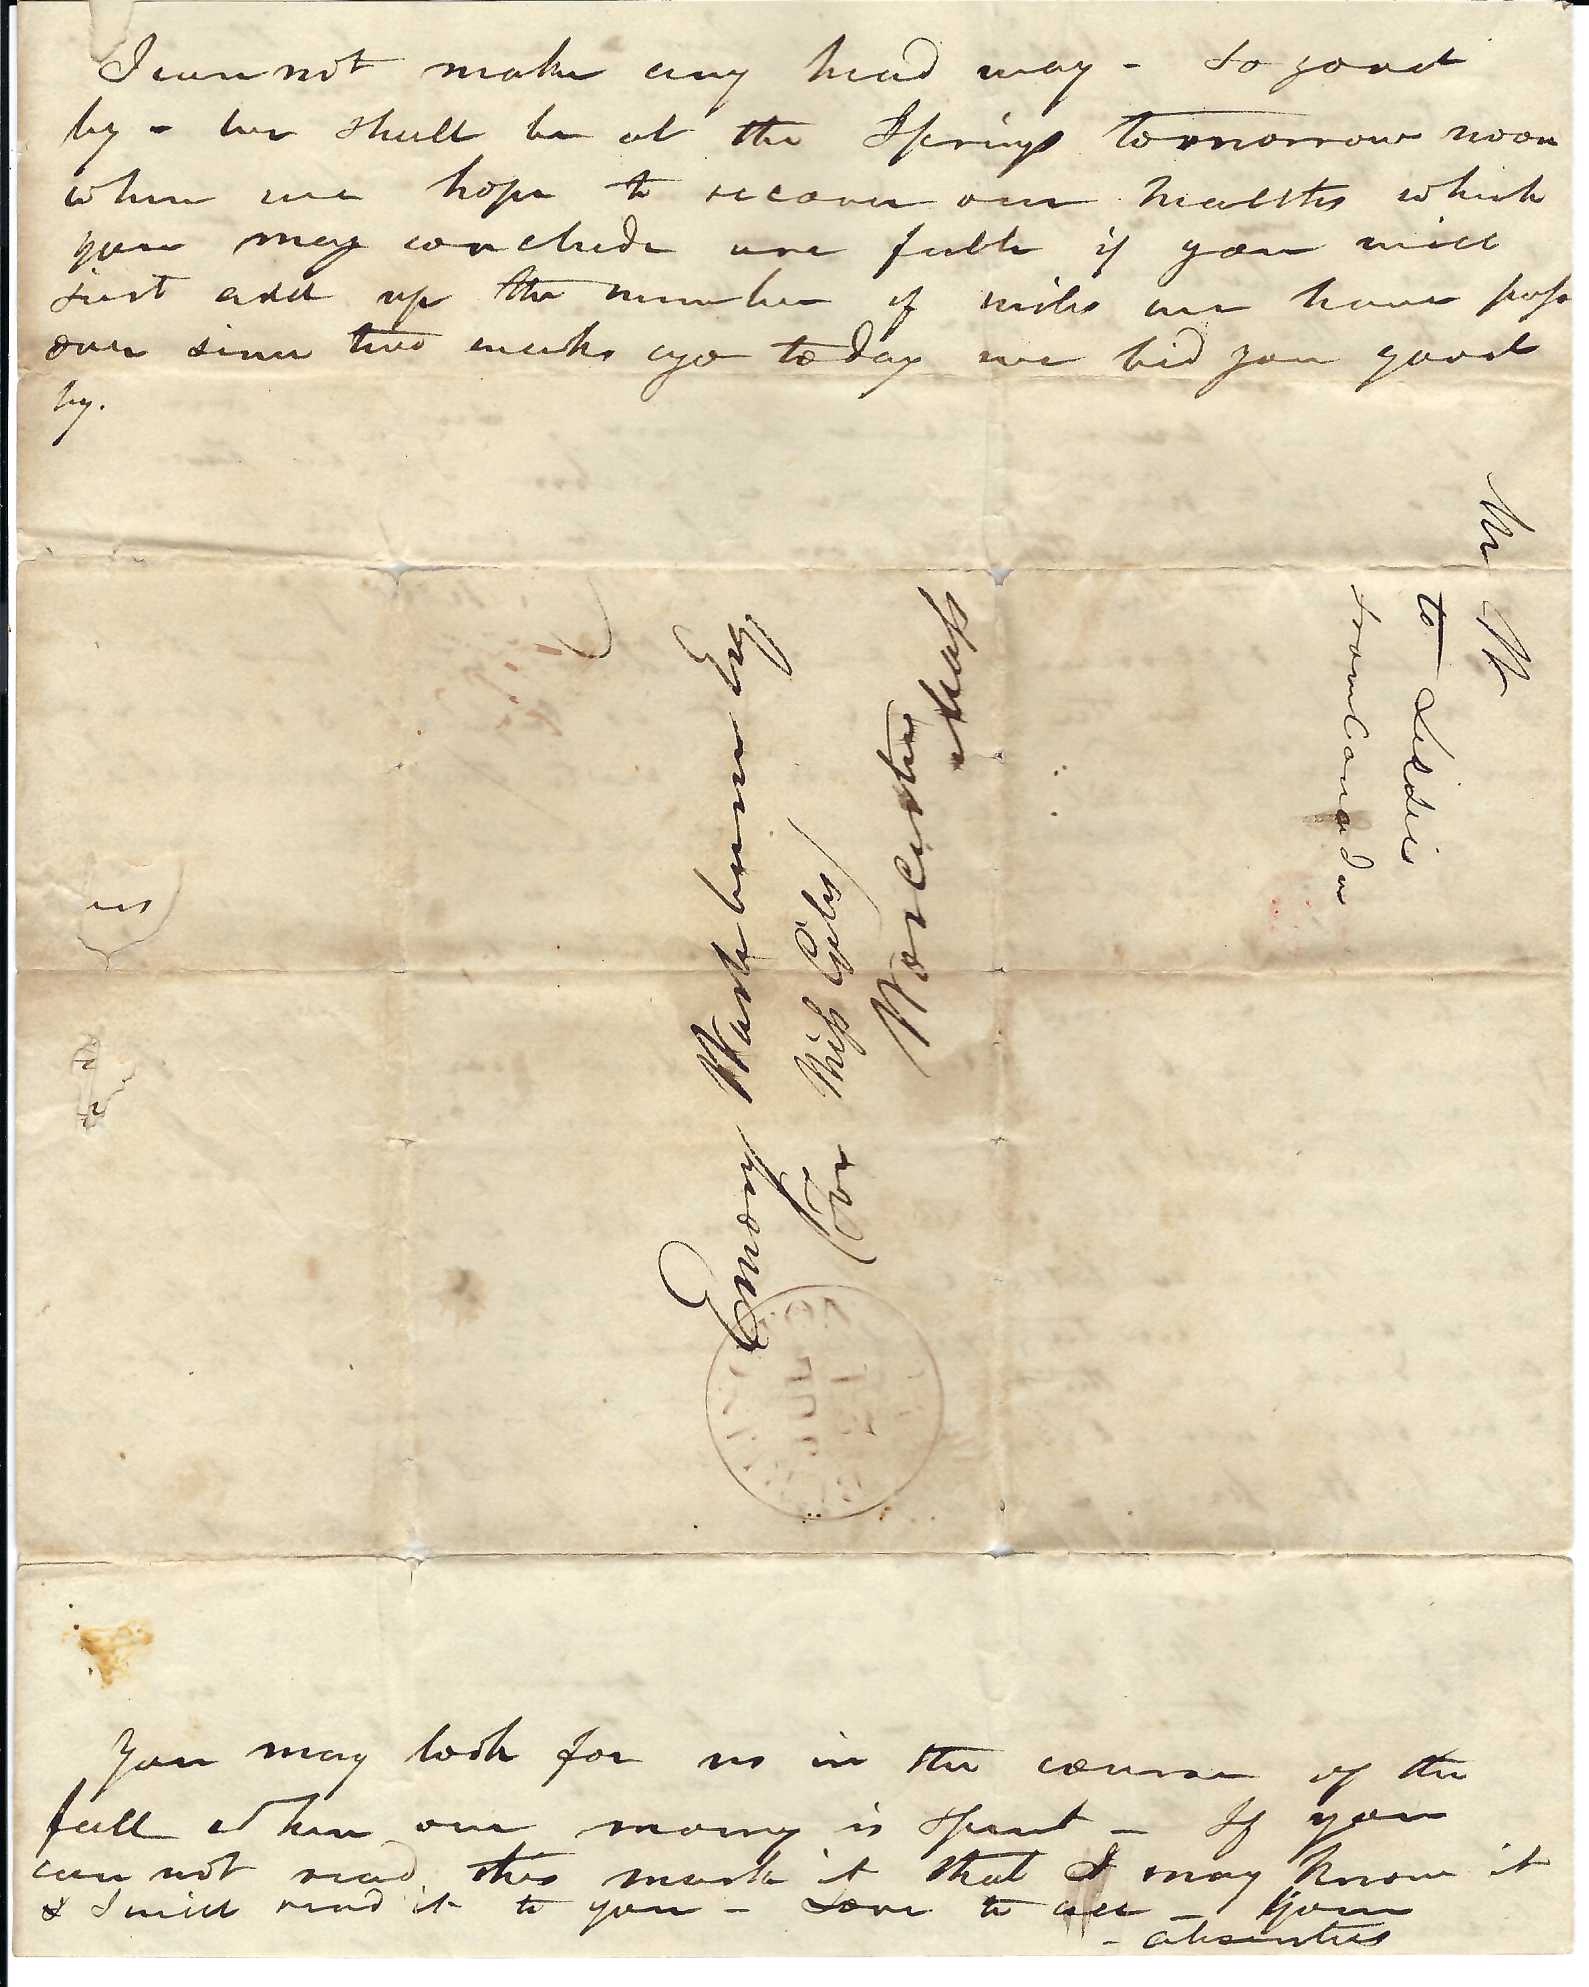 I can not make any head way - So good
by - we shall be at the Springs tomorrow noon
when we hope to recover our healths which
you may conclude are feeble if you will
just add up the number of miles we have pass
over since two weeks ago to day we bid you good
by.
Mr W
to Liddie
from Canada
Emory Washburn Esq.
(For Miss Giles)
Worcester
Mass
JUL
You may look for us in the course of the
fall when our money is spent - If you
can not read this mark it that I may know it
& I will read it to you - Love to all - Your
- absentees